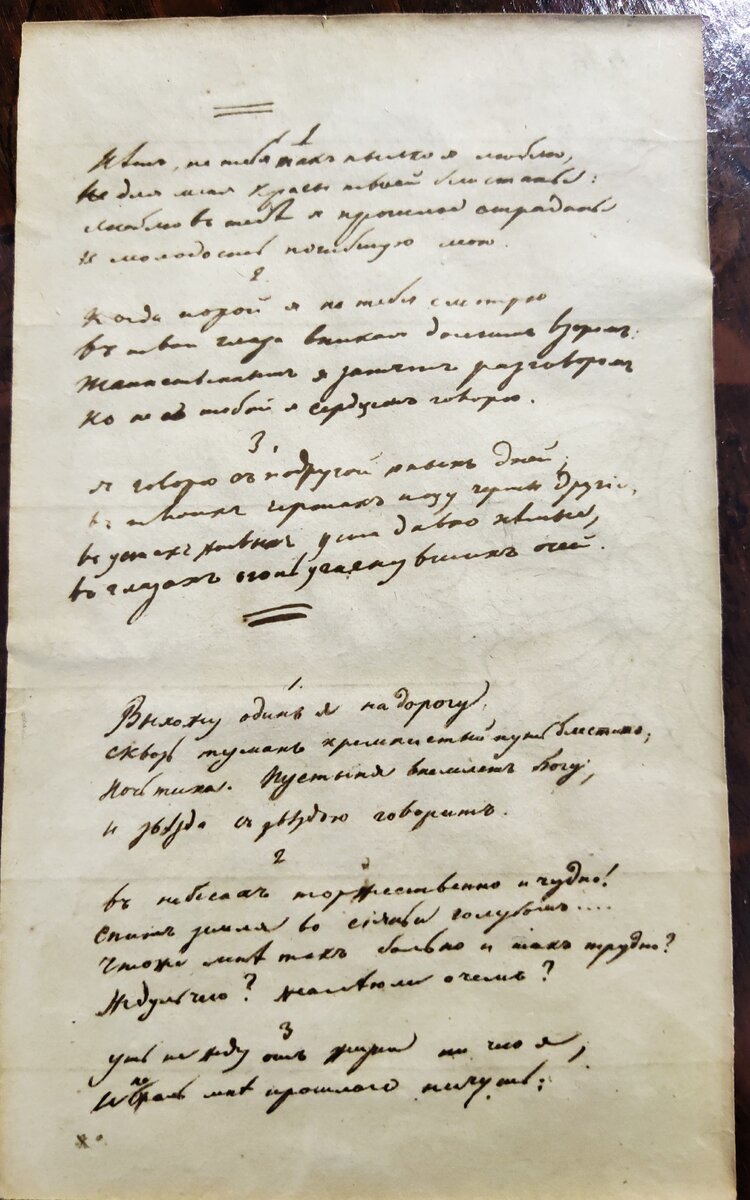 1
Нѣтъ, не тебя такъ пылко я люблю,
Не для меня красы твоей блистанье:
Люблю въ тебѣ я прошлое страданье
И молодость погибшую мою.
2
Когда порой я на тебя смотрю
Въ твои глаза вникая долгимъ взоромъ:
Таинственнымъ я занятъ разговоромъ
Но не съ тобой я сердцемъ говорю.
3
Я говорю съ подругой юныхъ дней;
Въ твоихъ чертахъ ищу черты другія,
Въ устахъ живыхъ уста давно нѣмые,
Въ глазахъ огонь угаснувшихъ очей.
1.
Выхожу одинъ я на дорогу,
Сквозь туманъ кремнистый путь блеститъ;
Ночь тиха. Пустыня внемлетъ Богу,
И звѣзда съ звѣздою говоритъ.
2
Въ небесахъ торжественно и чудно!
Спитъ земля въ сіяньи голубомъ....
Чтоже мнѣ такъ больно и такъ трудно?
Жду ль чего? жалѣю ли о чемъ?
3
Ужъ не жду отъ жизни ничего я,
И не жаль мнѣ прошлаго ничуть;